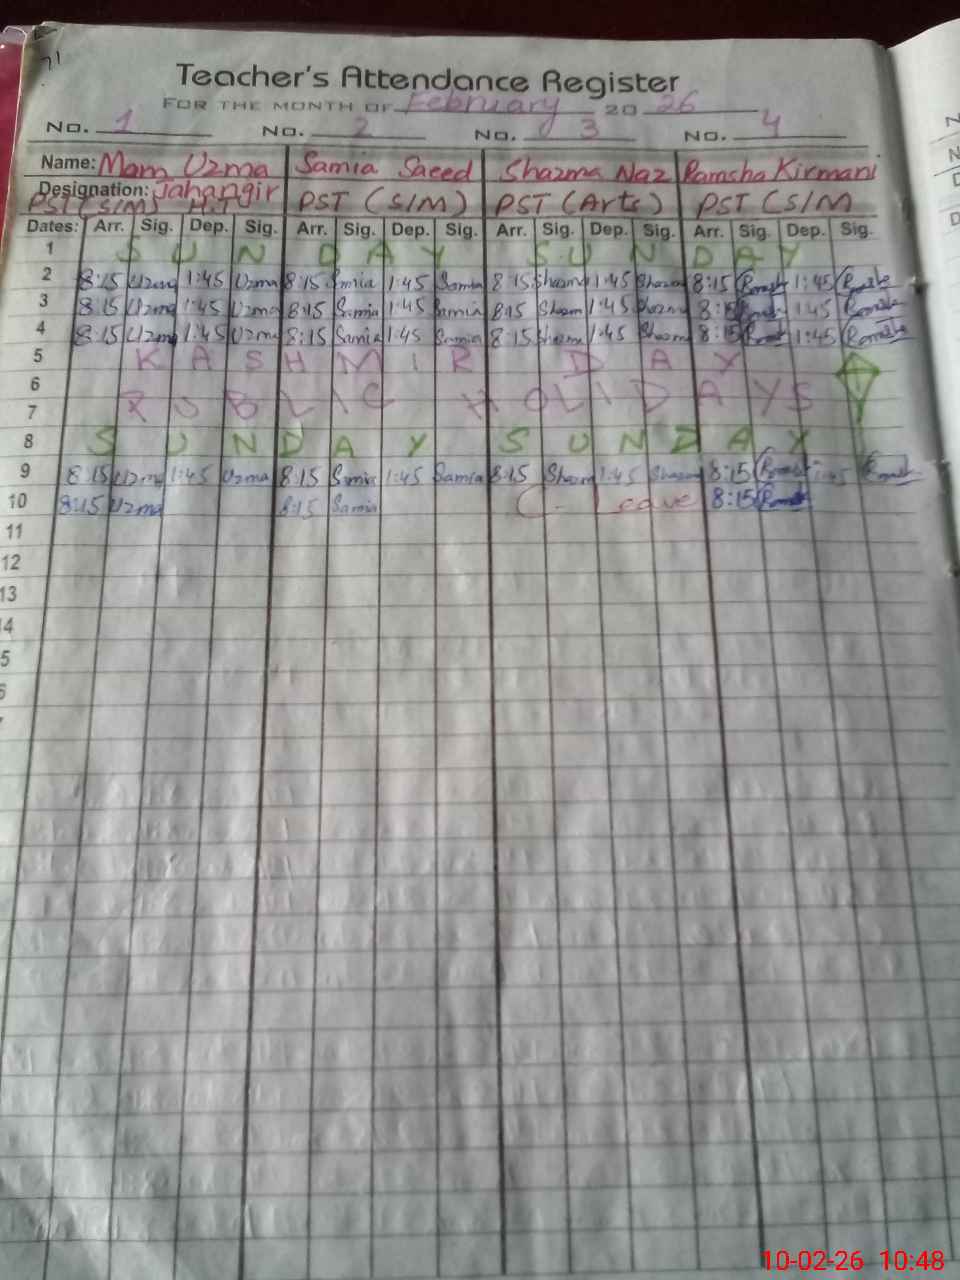 71
Teacher's Attendance Register
FOR THE MONTH OF February 20 26
No. 1 No. 2 No. 3 No. 4
Name: Mam Uzma Samia Saeed Shazma Naz Ramsha Kirmani
Designation: Jahangir
PST (S/M) H.T PST (S/M) PST (Arts) PST (S/M
Dates: Arr. Sig. Dep. Sig. Arr. Sig. Dep. Sig. Arr. Sig. Dep. Sig. Arr. Sig. Dep. Sig.
1 SUNDAY SUNDAY
2 8:15 Uzma 1:45 Uzma 8:15 Samia 1:45 Samia 8:15 Shazma 1:45 Shazma 8:15 Ramsha 1:45 Ramsha
3 8:15 Uzma 1:45 Uzma 8:15 Samia 1:45 Samia 8:15 Shazm 1:45 Shazma 8:15 Ramsha 1:45 Ramsha
4 8:15 Uzma 1:45 Uzma 8:15 Samia 1:45 Samia 8:15 Shazma 1:45 Shazma 8:15 Ramsha 1:45 Ramsha
5 KASHMIR DAY
6
7 PUBLIC HOLIDAYS
8 SUNDAY SUNDAY
9 8:15 Uzma 1:45 Uzma 8:15 Samia 1:45 Samia 8:15 Shazm 1:45 Shazma 8:15 Ramsha 1:45 Ramsha
10 8:15 Uzma 8:15 Samia C. Leave 8:15 Ramsha
11
12
13
4
5
10-02-26 10:48